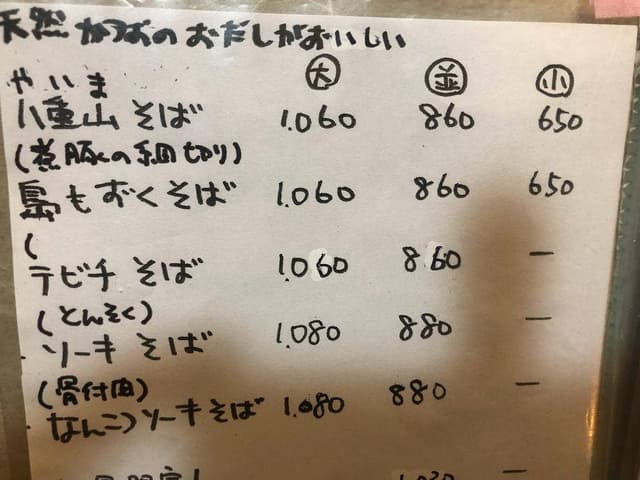 天然かつおのおだしがおいしい
大 並 小
やいま
八重山そば 1.060 860 650
(煮豚の細切り)
島もずくそば 1.060 860 650
(
テビチそば 1.060 860 ー
(とんそく)
ソーキそば 1.080 880 ー
(骨付肉)
なんこつソーキそば 1.080 880 ー